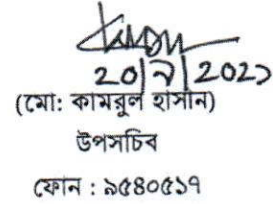 20|৯|202১
(মো: কামরুল হাসান)
উপসচিব
ফোন : ৯৫৪০৫১৭